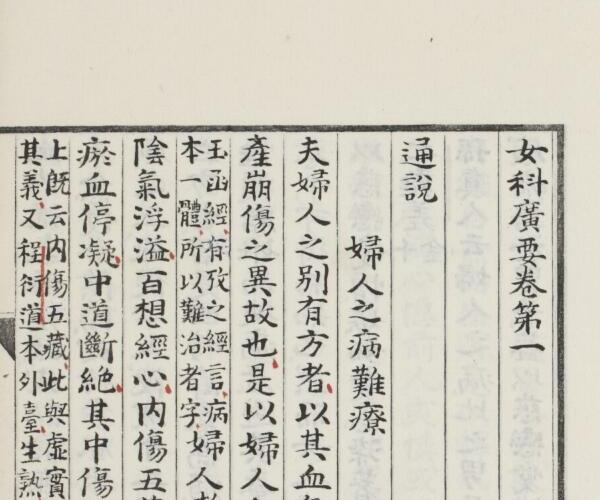 女科廣要卷第一
通說
婦人之病難療
夫婦人之別有方者以其血
產崩傷之異故也是以婦人
玉函經有攷之經言病
本一體所以難治者字
婦人
陰氣浮溢百想經心內傷五
瘀血停凝中道斷絶其中傷
上既云內傷五藏此與虛實
其義又程衍道本外臺生熟